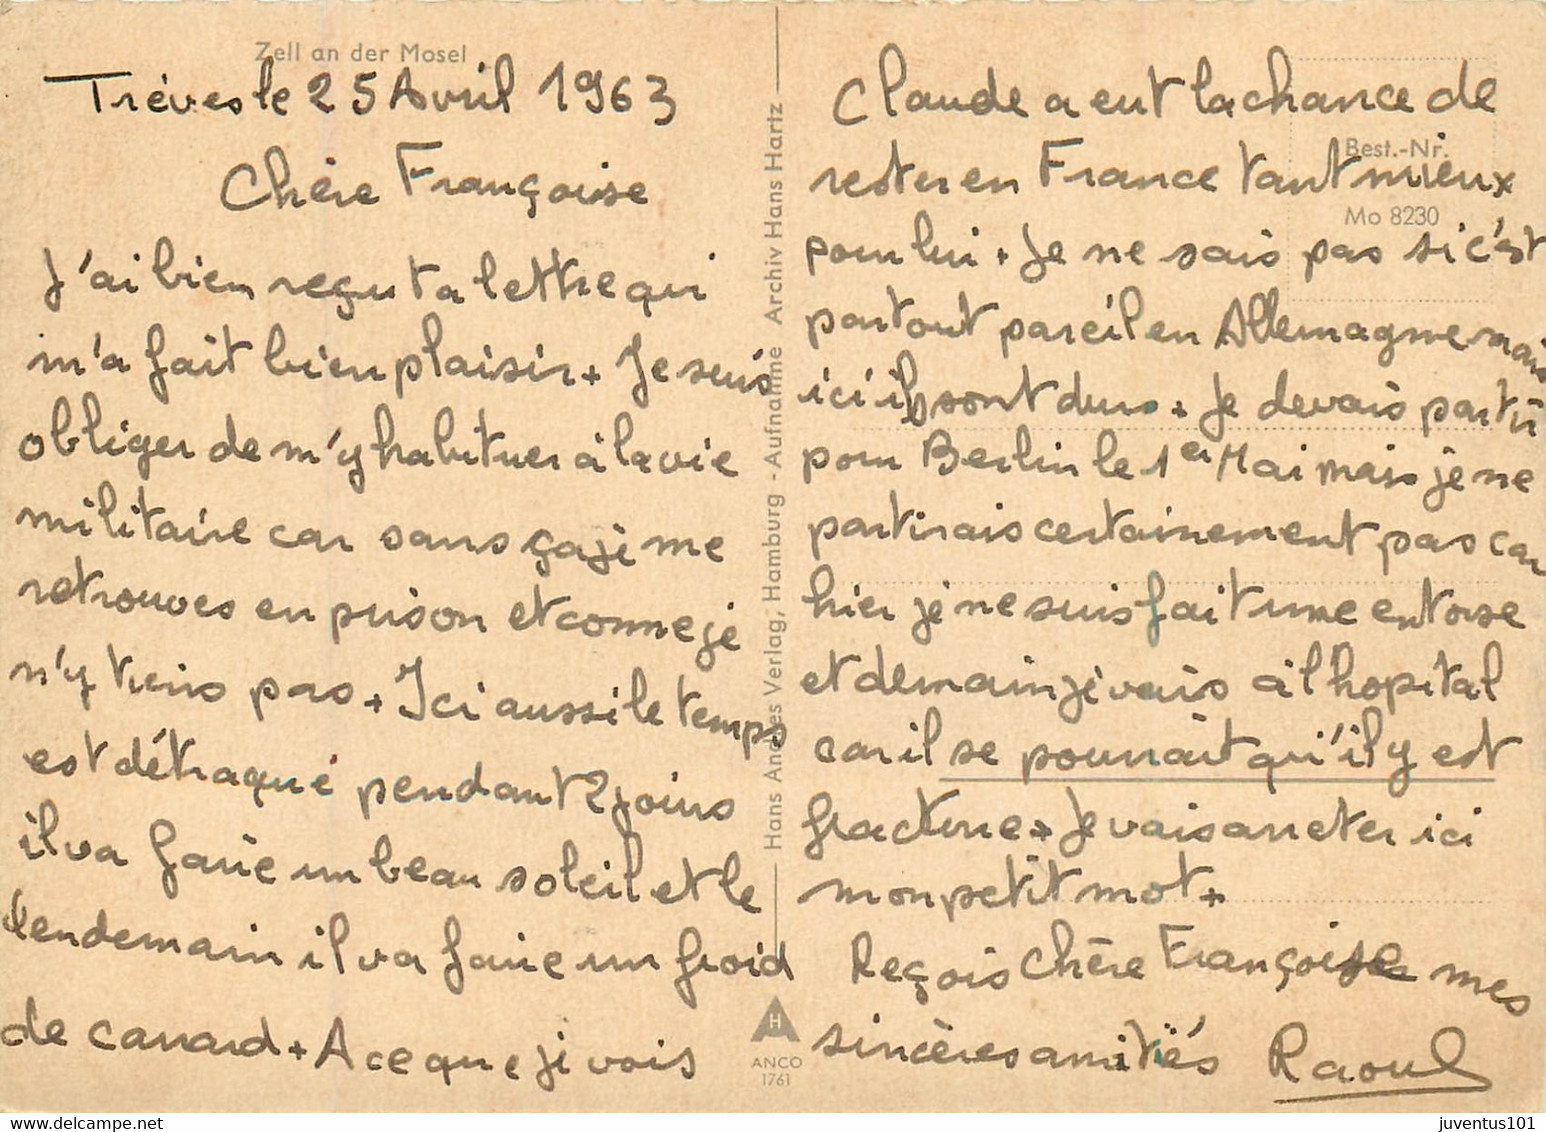 Zell an der Mosel
Trèves le 25 Avril 1963
Chère Françoise
J'ai bien reçu ta lettre qui
m'a fait bien plaisir + Je suis
obliger de m'y habituer à la vie
militaire car sans ça je me
retrouves en prison et comme je
n'y tiens pas + Ici aussi le temps
est détraqué pendant 2 joins
il va faire un beau soleil et le
lendemain il va faire un froid
de canard + A ce que je vois
Hans Andres Verlag, Hamburg - Aufnahme Archiv Hans Hartz
H
ANCO
1761
Best.-Nr.
Mo 8230
Claude a eut la chance de
rester en France tant mieux
pour lui + Je ne sais pas si c'est
partout pareil en Allemagne mais
ici ils sont durs + Je devais partir
pour Berlin le 1er Mai mais je ne
partirais certainement pas car
hier je ne suis fait une entorse
et demain je vais à l'hopital
car il se pourrait qu'il y est
fracture + Je vais arreter ici
mon petit mot +
Reçois Chère Françoise mes
sincères amitiés Raoul
juventus101